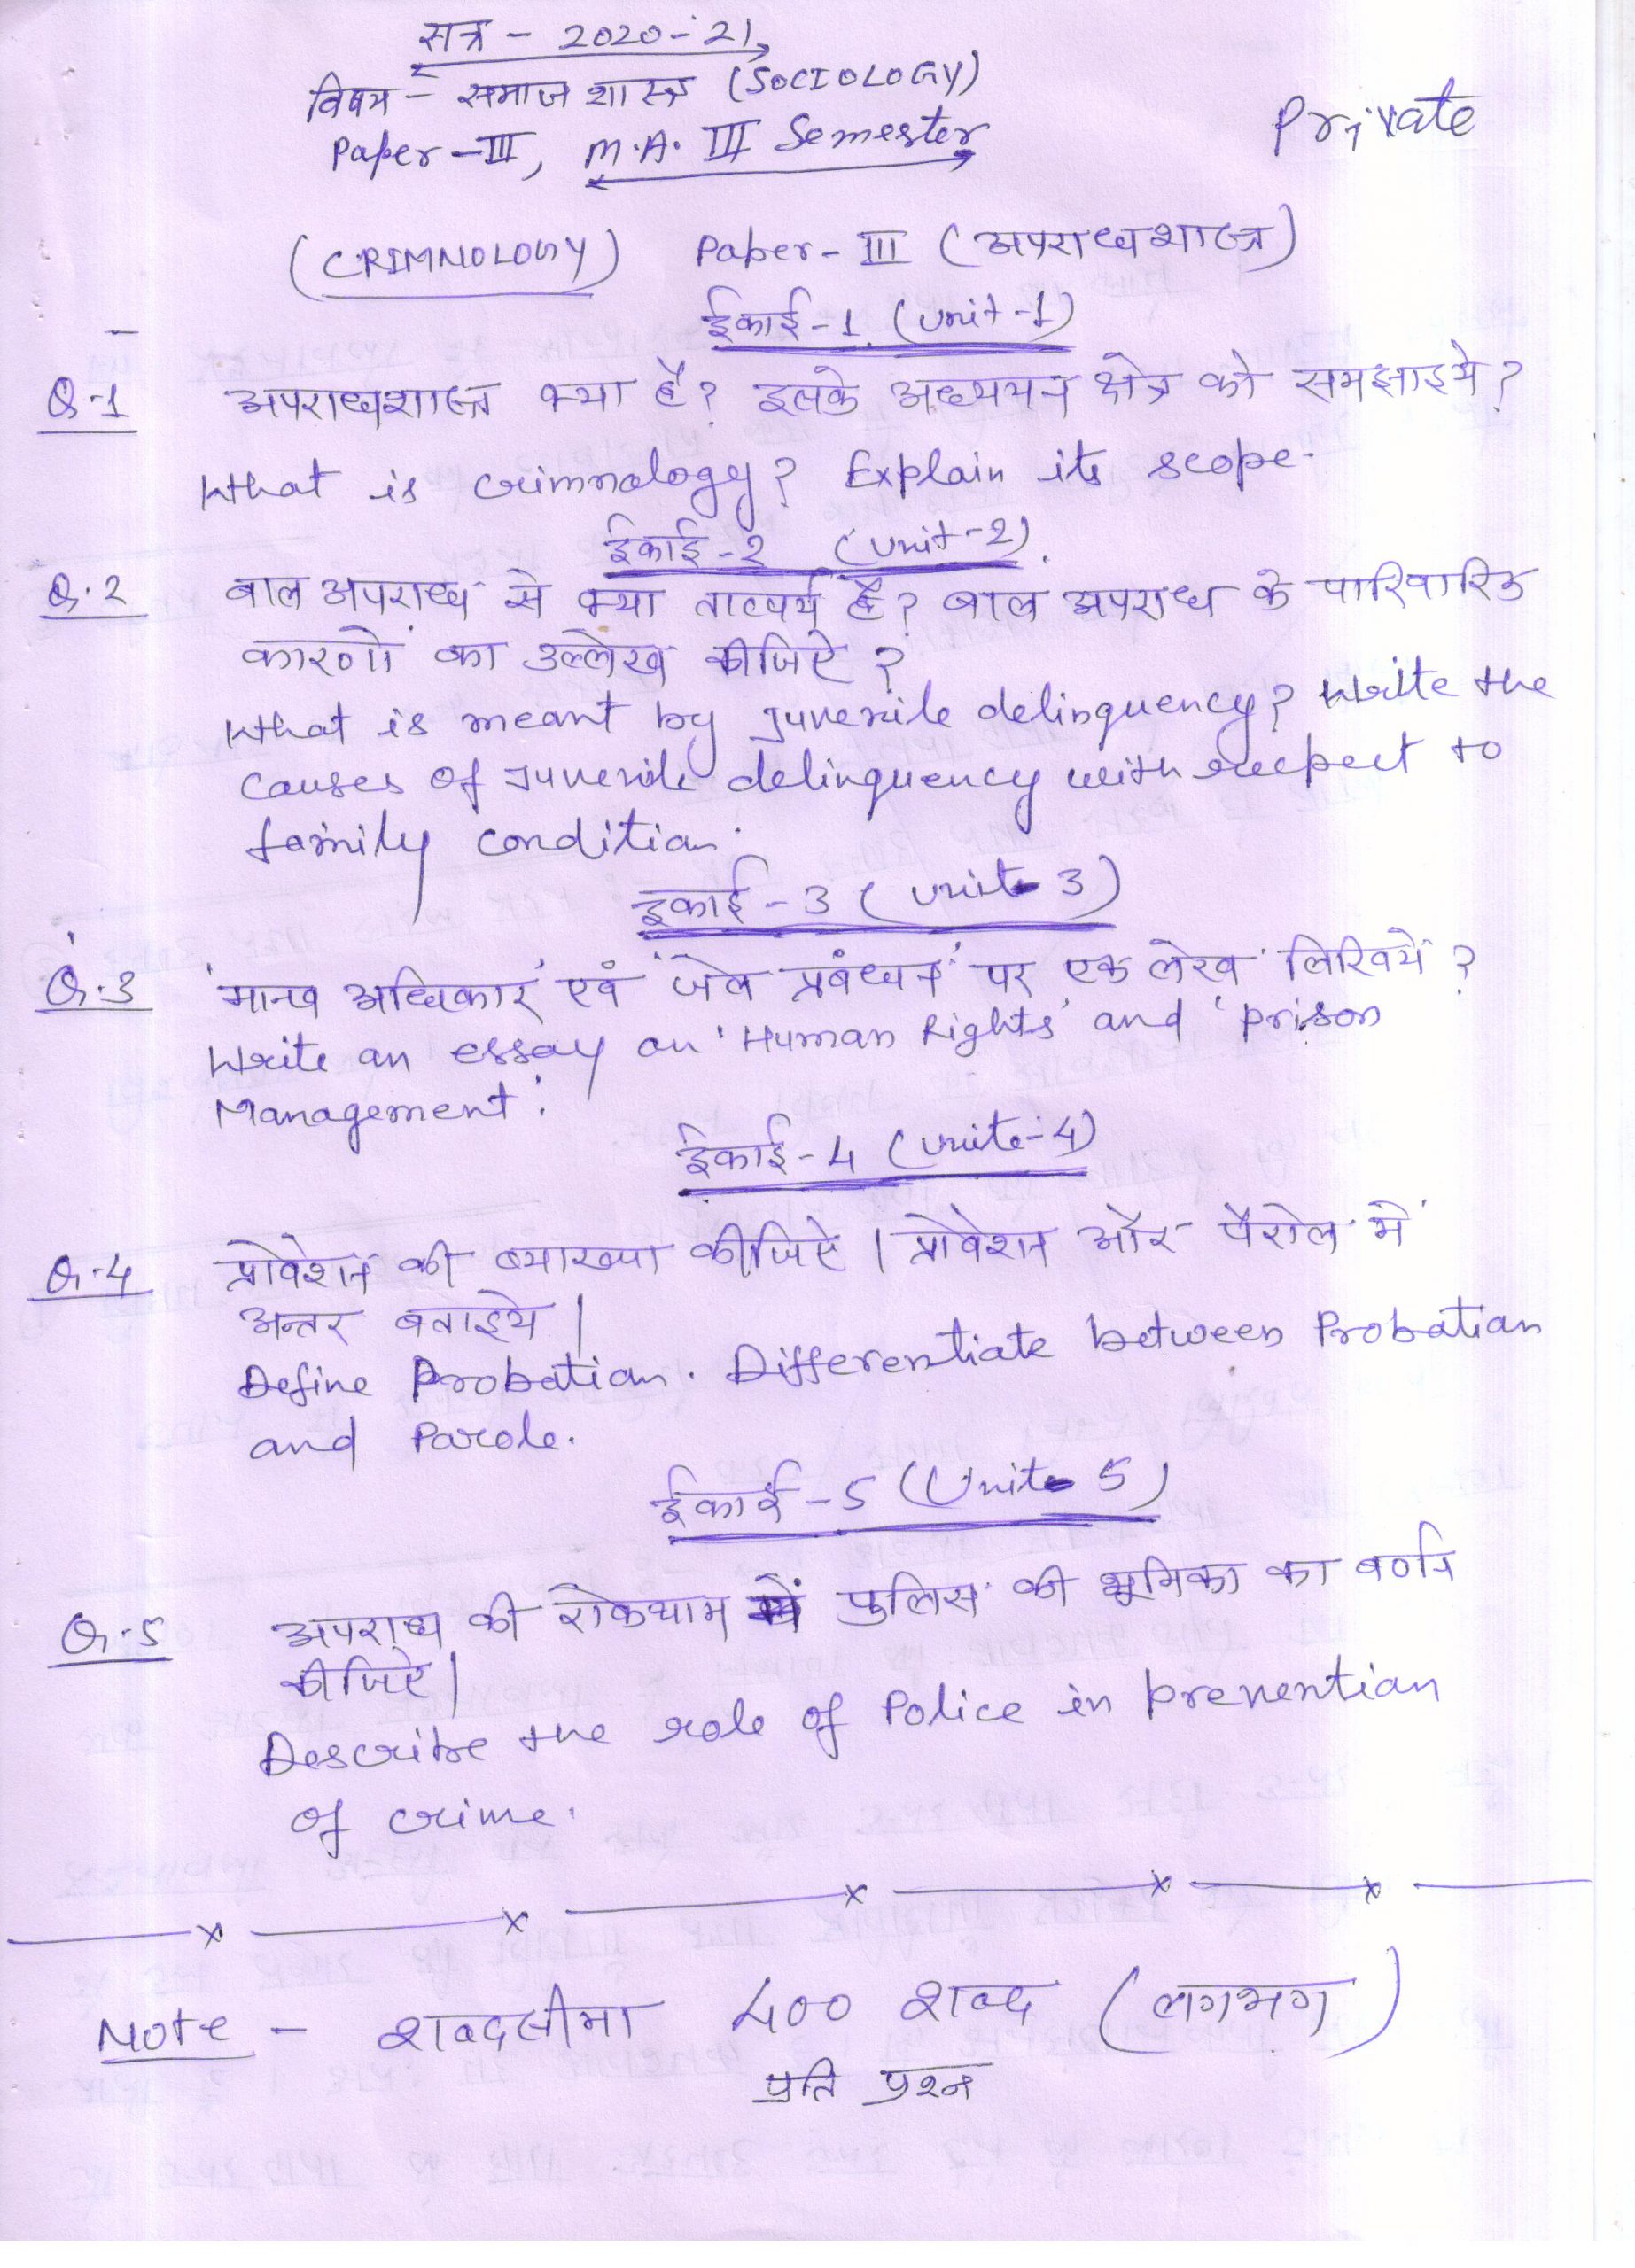 सत्र - 2020-'21,
विषय - समाज शास्त्र (SOCIOLOGY)
Private
Paper-III, M.A. III Semester
(CRIMNOLOGY) Paper-III (अपराधशास्त्र)
ईकाई-1 (Unit-1)
Q.1 अपराधशास्त्र क्या है? इसके अध्ययन क्षेत्र को समझाइये?
What is Crimnology? Explain its scope.
ईकाई-2 (Unit-2).
Q.2 बाल अपराध से क्या तात्पर्य है? बाल अपराध के पारिवारिक
कारणों का उल्लेख कीजिऐ?
What is meant by Juvenile delinquency? Write the
causes of Juvenile delinquency with respect to
family condition.
इकाई-3 (Unit-3)
Q.3 'मानव अधिकार' एवं 'जेल प्रबंधन' पर एक लेख लिखियें?
Write an essay on 'Human Rights' and 'Prison
Management'.
ईकाई-4 (Unite-4)
Q.4 प्रोवेशन की ब्याख्या कीजिऐ। प्रोवेशन और पैरोल में
अन्तर बताइये।
Define Probation. Differentiate between Probation
and Parole.
ईकाई-5 (Unit-5)
Q.5 अपराध की रोकथाम में पुलिस की भूमिका का वर्णन
कीजिऐ।
Describe the role of Police in prevention
of crime.
Note - शब्दसीमा 400 शब्द (लगभग)
प्रति प्रश्न